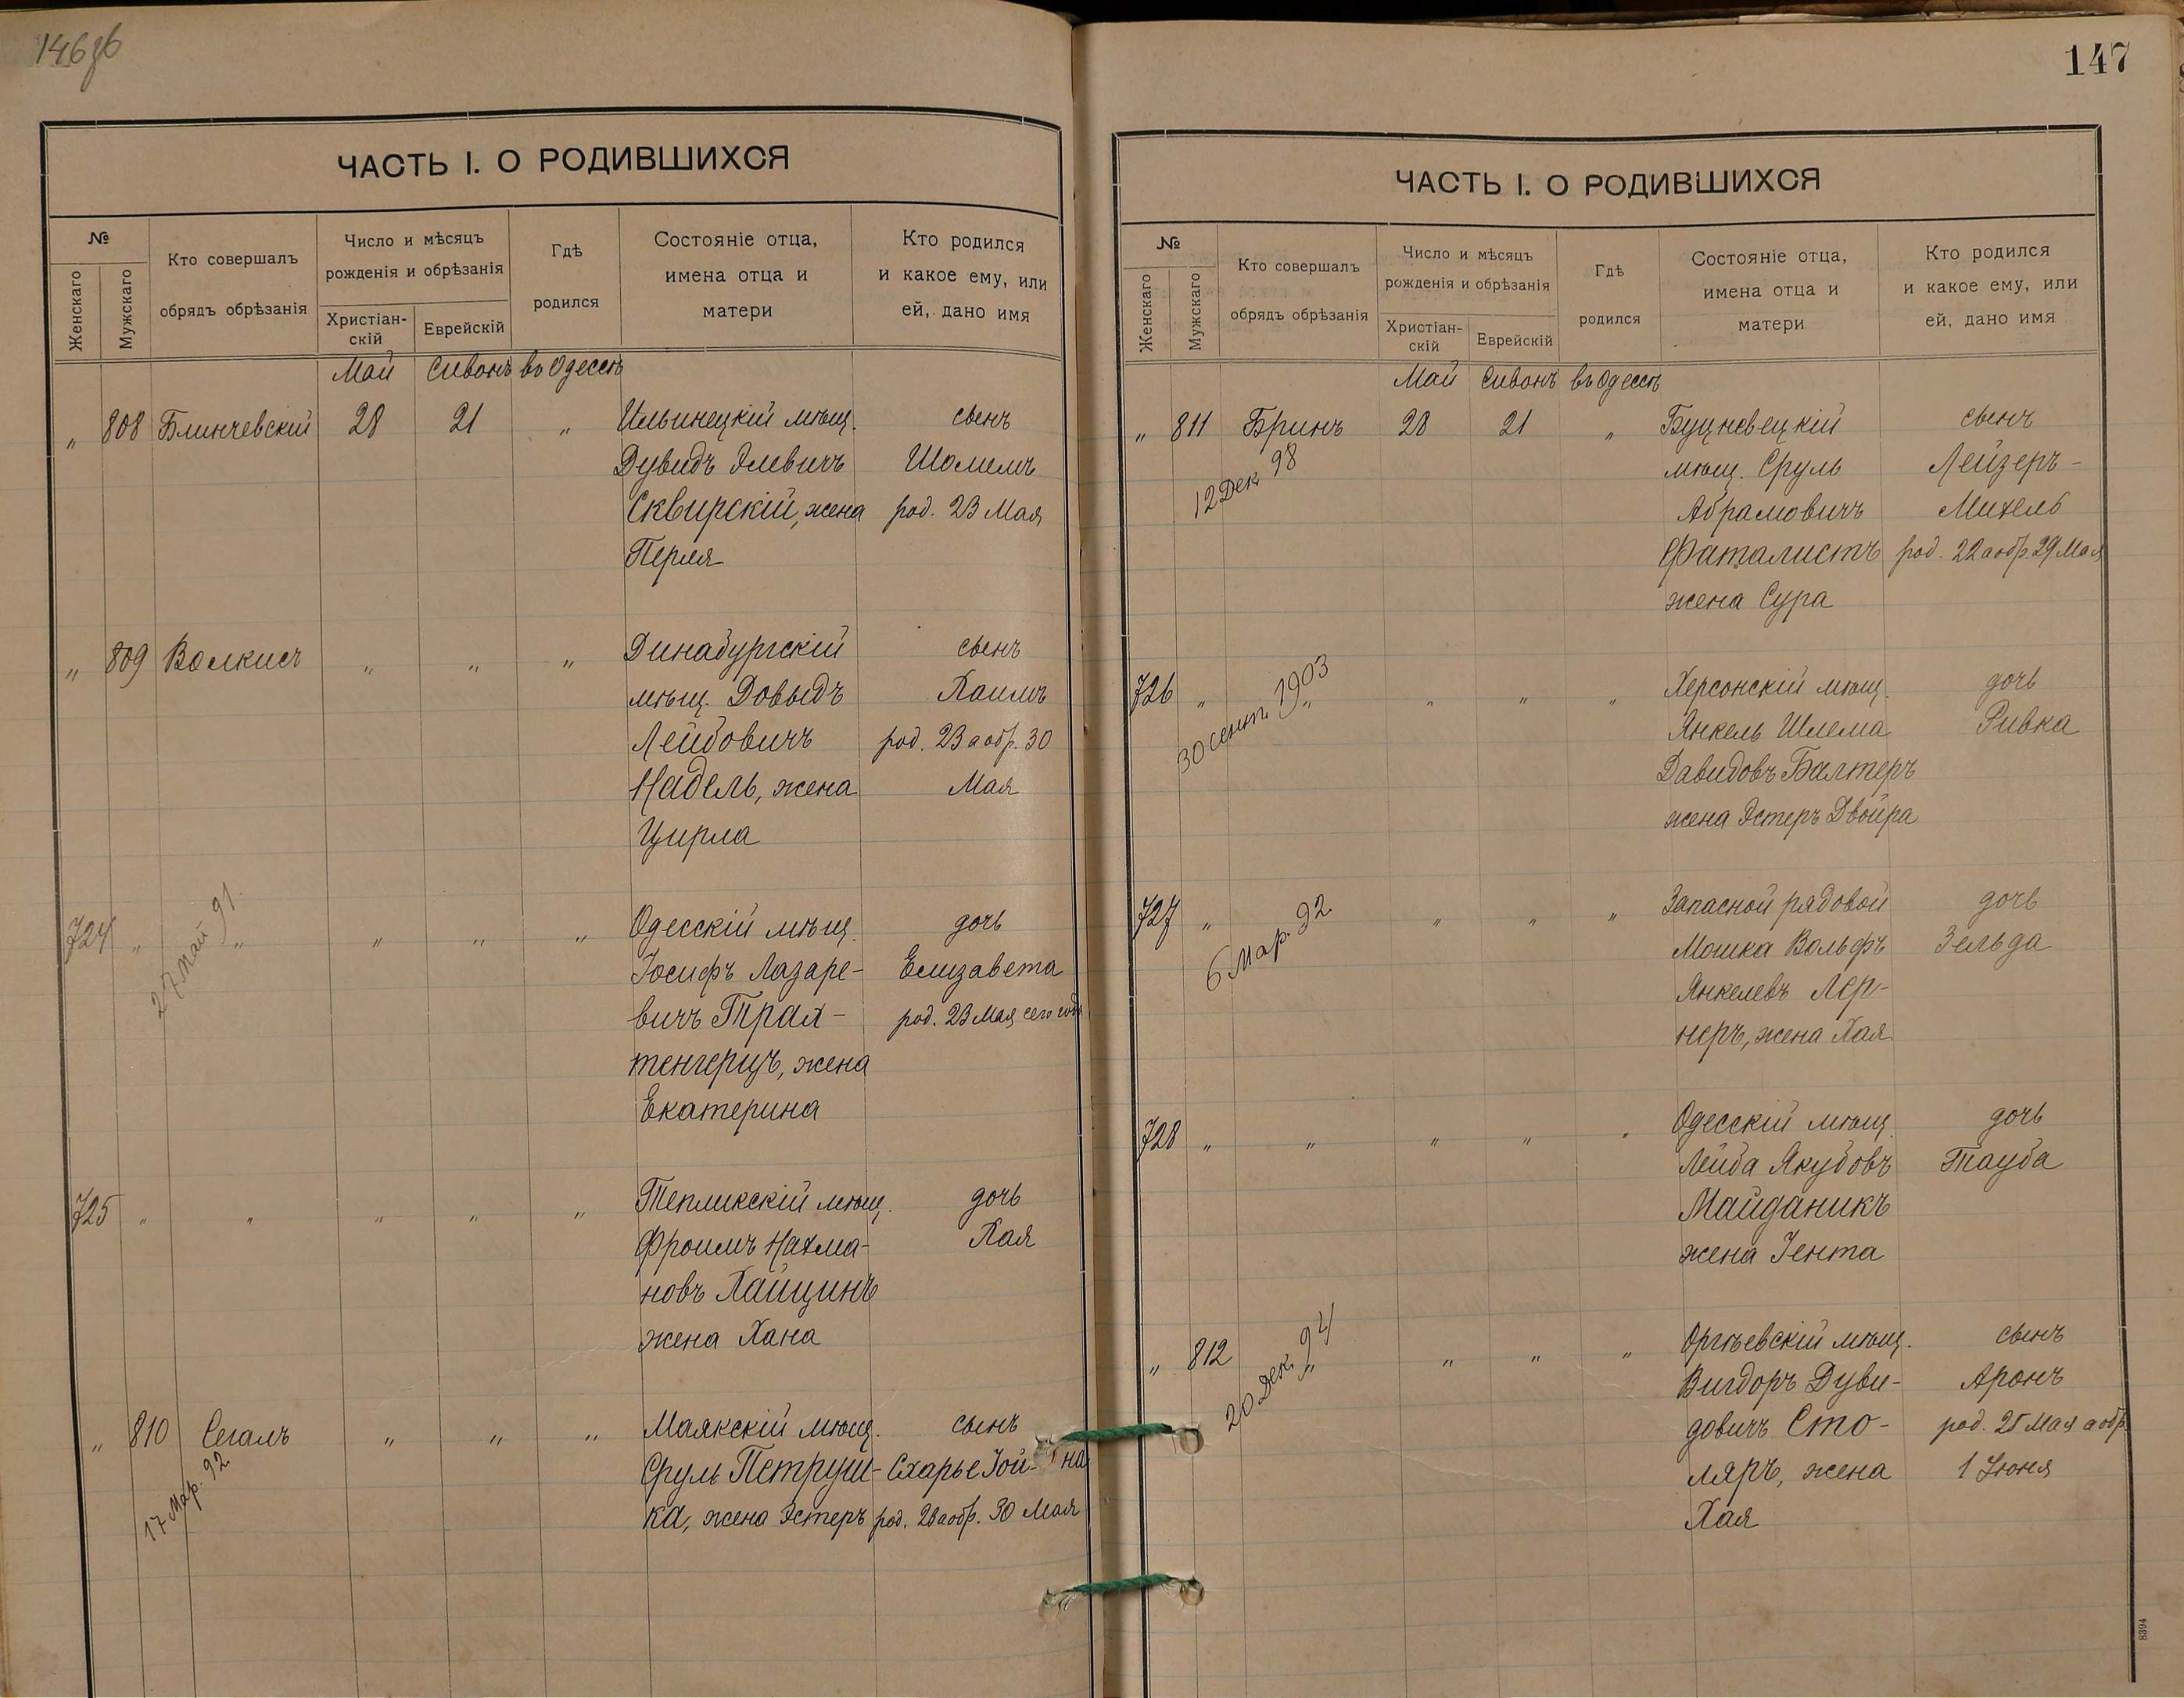 146об
ЧАСТЬ I. О РОДИВШИХСЯ
№
Женскаго
Мужскаго
Кто совершалъ
обрядъ обрѣзанія
Число и мѣсяцъ
рожденія и обрѣзанія
Христіан-
скій
Еврейскій
Гдѣ
родился
Состояніе отца,
имена отца и
матери
Кто родился
и какое ему, или
ей, дано имя
Май Сивонъ въ Одессѣ
„ 808 Блинчевскій 28 21 „ Ильинецкій мѣщ. сынъ
Дувидъ Элевичъ Шолемъ
Сквирскій, жена род. 23 Мая
Перля
„ 809 Волкисъ „ „ „ Динабургскій сынъ
мѣщ. Довыдъ Хаимъ
Лейбовичъ род. 23 а обр. 30
Надель, жена Мая
Цирла
724 „ „ „ „ „ Одесскій мѣщ. дочь
27 май 91.
Іосифъ Лазаре- Елизавета
вичъ Трах- род. 23 Мая сего года
тенгерцъ, жена
Екатерина
725 „ „ „ „ „ Тепликскій мѣщ. дочь
Фроимъ Нахма- Хая
новъ Хайцинъ
жена Хана
„ 810 Сегалъ „ „ „ Маякскій мѣщ. сынъ
17 Мар. 92
Сруль Петруш- Схарье Іой- на
ка, жена Эстеръ род. 23 а обр. 30 Мая
147
ЧАСТЬ I. О РОДИВШИХСЯ
№
Женскаго
Мужскаго
Кто совершалъ
обрядъ обрѣзанія
Число и мѣсяцъ
рожденія и обрѣзанія
Христіан-
скій
Еврейскій
Гдѣ
родился
Состояніе отца,
имена отца и
матери
Кто родился
и какое ему, или
ей, дано имя
Май Сивонъ въ Одессѣ
„ 811 Бринъ 28 21 „ Буцневецкій сынъ
12 Дек. 98
мѣщ. Сруль Лейзеръ-
Абрамовичъ Михель
Фаталистъ род. 22 а обр. 29 Мая
жена Сура
726 „ „ „ „ „ Херсонскій мѣщ. дочь
30 сент. 1903
Янкель Шлема Ривка
Давидовъ Балтеръ
жена Эстеръ Двойра
727 „ „ „ „ Запасной рядовой дочь
6 Мар. 92
Мошка Вольфъ Зельда
Янкелевъ Лер-
неръ, жена Хая
728 „ „ „ „ „ Одесскій мѣщ. дочь
Лейба Якубовъ Тауба
Майданикъ
жена Іента
„ 812 „ „ „ „ Оргѣевскій мѣщ. сынъ
20 Дек. 94
Вигдоръ Дуви- Аронъ
довичъ Сто- род. 25 Мая а обр.
ляръ, жена 1 Іюня
Хая
8394